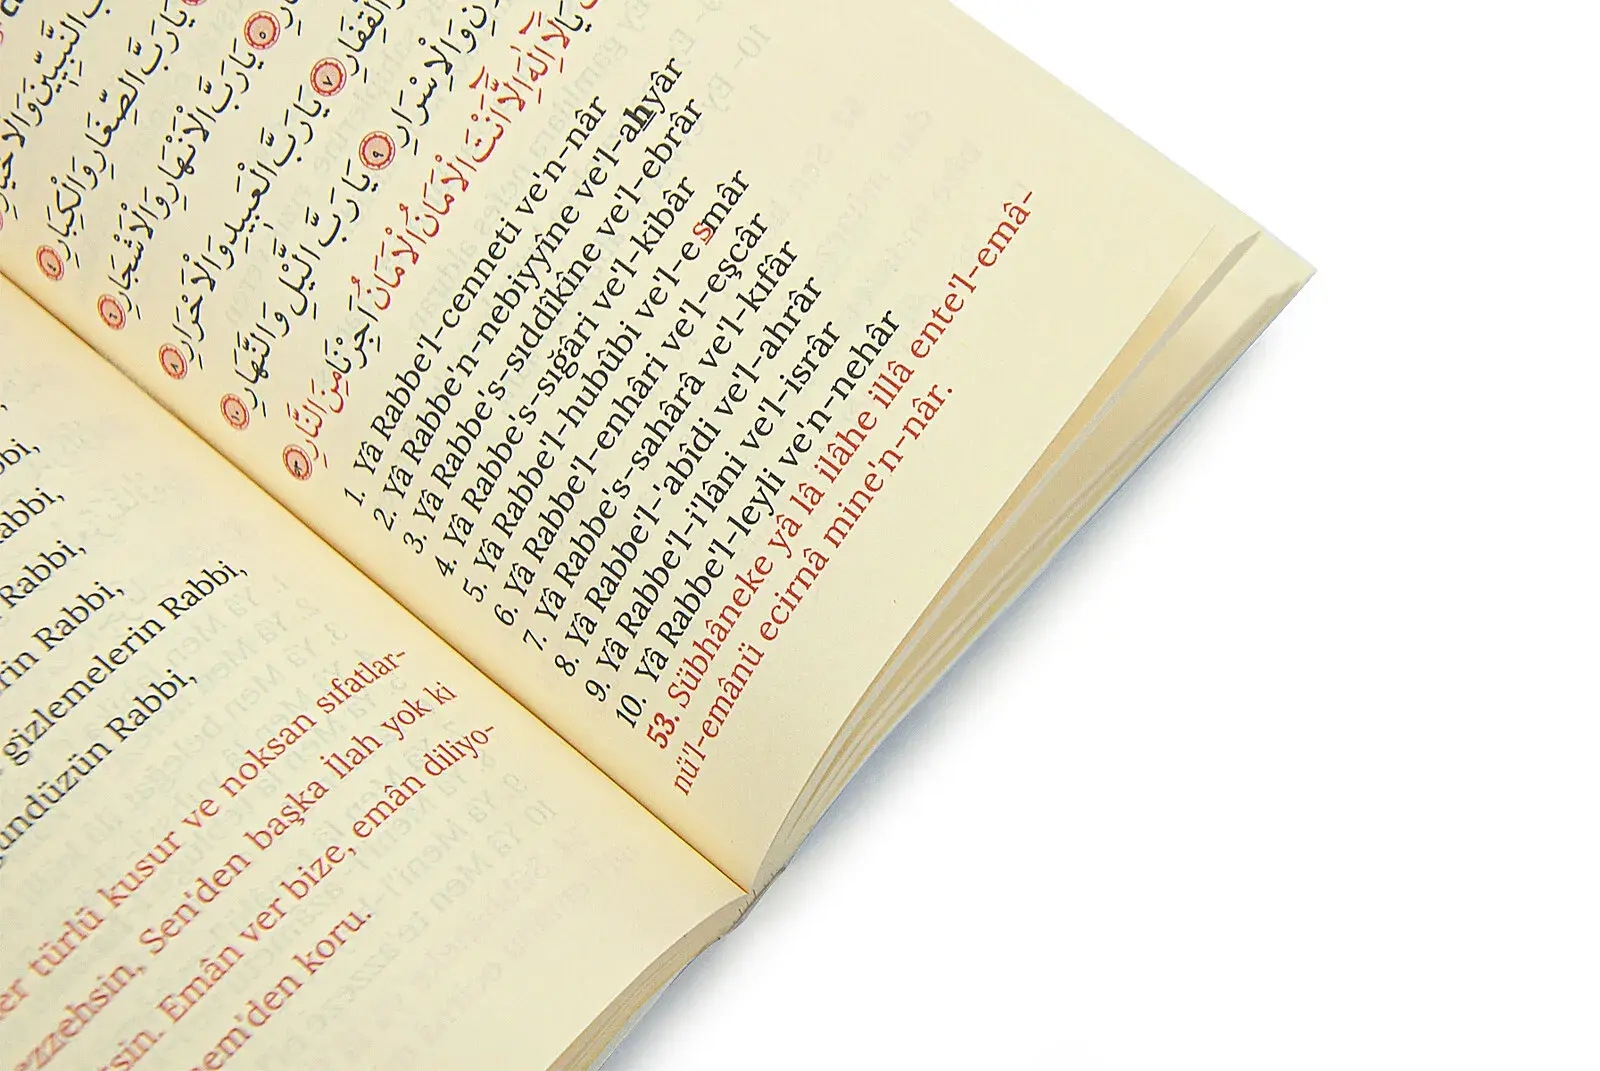 النَّبِيِّينَ وَالْاَخْيَارِ
يَارَبَّ الصِّغَارِ وَالْكِبَارِ ٤
٥ يَارَبَّ الْاَنْهَارِ وَالْاَشْجَارِ ٦
الْقِفَارِ ٧ يَارَبَّ الْعَبِيدِ وَالْاَحْرَارِ ٨
وَالْاِسْرَارِ ٩ يَارَبَّ الَّيْلِ وَالنَّهَارِ ١٠
يَالَٓا اِلٰهَ اِلَّٓا اَنْتَ الْاَمَانُ الْاَمَانُ اَجِرْنَا مِنَ النَّارِ ٥٣
1. Yâ Rabbe'l-cenneti ve'n-nâr
2. Yâ Rabbe'n-nebiyyîne ve'l-ahyâr
3. Yâ Rabbe's-sıddîkîne ve'l-ebrâr
4. Yâ Rabbe's-sığâri ve'l-kibâr
5. Yâ Rabbe'l-hubûbi ve'l-esmâr
6. Yâ Rabbe'l-enhâri ve'l-eşcâr
7. Yâ Rabbe's-sahârâ ve'l-kıfâr
8. Yâ Rabbe'l-'abîdi ve'l-ahrâr
9. Yâ Rabbe'l-i'lâni ve'l-isrâr
10. Yâ Rabbe'l-leyli ve'n-nehâr
53. Sübhâneke yâ lâ ilâhe illâ ente'l-emâ-
nü'l-emânü ecirnâ mine'n-nâr.
Rabbi,
Rabbi,
Rabbi,
gizlemelerin Rabbi,
Rabbi,
türlü kusur ve noksan sıfatlar-
Sen'den başka İlah yok ki
Emân ver bize, emân diliyo-
koru.